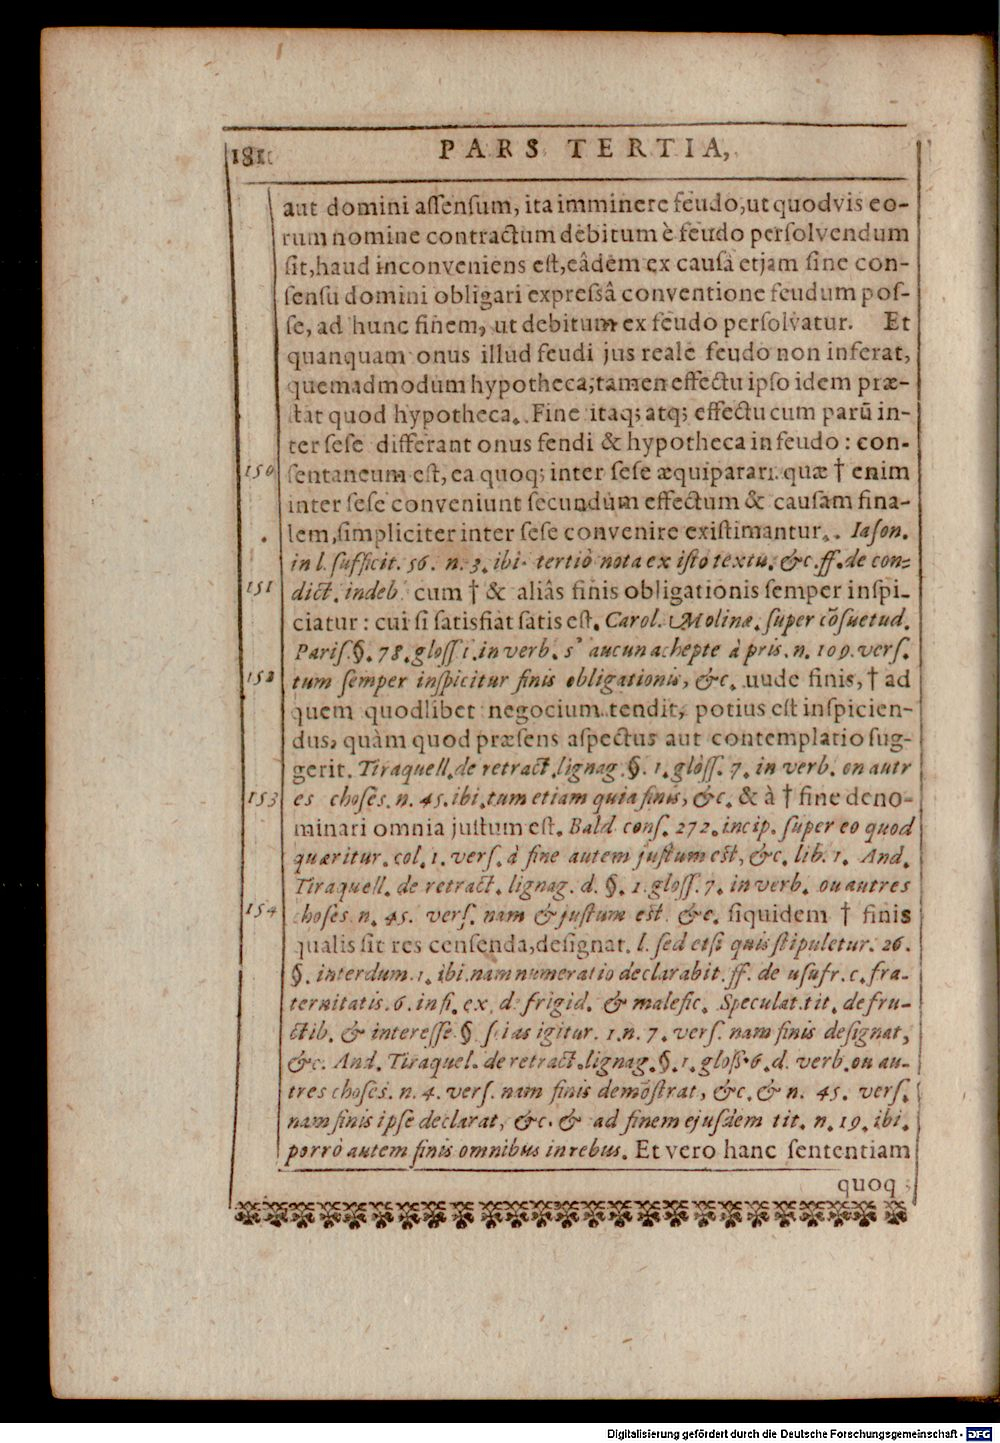 181
PARS TERTIA,
aut domini aſſenſum, ita imminere feudo, ut quodvis eo-
rum nomine contractum debitum è feudo perſolvendum
ſit, haud inconveniens eſt, eâdem ex causâ etjam ſine con-
ſenſu domini obligari expreſsâ conventione feudum poſ-
ſe, ad hunc finem, ut debitum ex feudo perſolvatur. Et
quanquam onus illud feudi jus reale feudo non inferat,
quemadmodum hypotheca; tamen effectu ipſo idem præ-
ſtat quod hypotheca. Fine itaq; atq; effectu cum parũ in-
ter ſeſe differant onus fendi & hypotheca in feudo: con-
150 ſentaneum eſt, ea quoq; inter ſeſe æquiparari. quæ † enim
inter ſeſe conveniunt ſecundùm effectum & cauſam fina-
lem, ſimpliciter inter ſeſe convenire exiſtimantur. Iaſon.
in l. ſufficit. 56. n. 3. ibi. tertiò nota ex iſto textu. &c. ff. de con-
151 dict. indeb. cum † & aliâs finis obligationis ſemper inſpi-
ciatur: cui ſi ſatisfiat ſatis eſt. Carol. Molinæ. ſuper cõſuetud.
Pariſ. §. 78. gloſſ 1. in verb. s' aucun achepte à pris. n. 109. verſ.
152 tum ſemper inſpicitur finis obligationis, &c. uude finis, † ad
quem quodlibet negocium tendit, potius eſt inſpicien-
dus, quàm quod præſens aſpectus aut contemplatio ſug-
gerit. Tiraquell. de retract. lignag. §. 1. gloſſ. 7. in verb. on autr
153 es choſes. n. 45. ibi. tum etiam quia finis, &c. & à † fine deno-
minari omnia juſtum eſt. Bald. conſ. 272. incip. ſuper eo quod
quæritur. col. 1. verſ. à fine autem juſtum eſt, &c. lib. 1. And.
Tiraquell. de retract. lignag. d. §. 1. gloſſ. 7. in verb. ou autres
154 choſes. n. 45. verſ. nam & juſtum eſt. &c. ſiquidem † finis
qualis ſit res cenſenda, deſignat. l. ſed etſi quis ſtipuletur. 26.
§. interdum. 1. ibi. nam numeratio declarabit. ff. de uſufr. c. fra-
ternitatis. 6. in fi. ex. d. frigid. & malefic. Speculat. tit. de fru-
ctib. & intereſſe. §. ſcias igitur. 1. n. 7. verſ. nam finis deſignat,
&c. And. Tiraquel. de retract. lignag. §. 1. gloß. 6. d. verb. ou au-
tres choſes. n. 4. verſ. nam finis demõſtrat, &c. & n. 45. verſ.
nam finis ipſe declarat, &c. & ad finem ejuſdem tit. n. 19. ibi.
porrò autem finis omnibus in rebus. Et vero hanc ſententiam
quoq
Digitalisierung gefördert durch die Deutsche Forschungsgemeinschaft - DFG